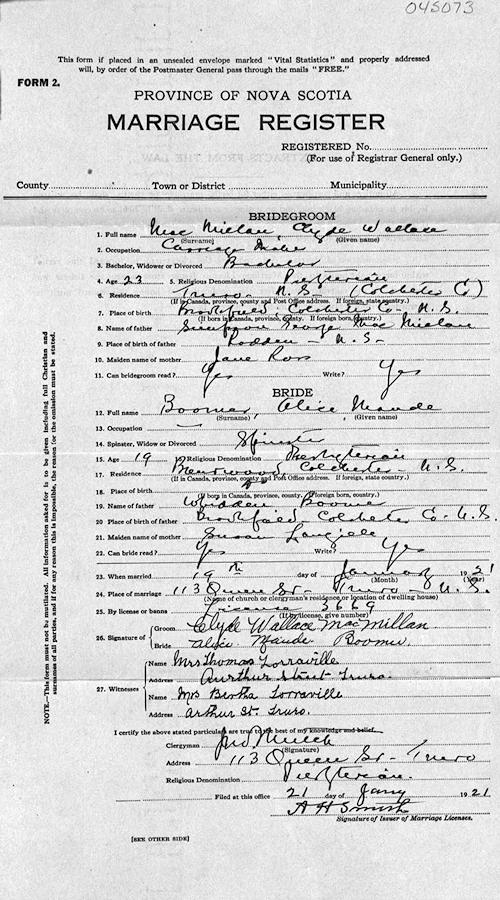 045073
This form if placed in an unsealed envelope marked "Vital Statistics" and properly addressed
will, by order of the Postmaster General pass through the mails "FREE."
FORM 2.
PROVINCE OF NOVA SCOTIA
MARRIAGE REGISTER
REGISTERED No.
(For use of Registrar General only.)
County Town or District Municipality
BRIDEGROOM
1. Full name Mac Millan, Clyde Wallace
(Surname) (Given name)
2. Occupation Carriage Maker
3. Bachelor, Widower or Divorced Bachelor
4. Age 23 5. Religious Denomination Presbyterian
6. Residence Truro - N.S. (Colchester Co)
(If in Canada, province, county and Post Office address. If foreign, state country.)
7. Place of birth Brookfield, Colchester Co - N.S.
(If born in Canada, province, county. If foreign born, country.)
8. Name of father Simpson George Mac Millan
9. Place of father Rodden - N.S.
10. Maiden name of mother Jane Ross
11. Can bridegroom read? Yes Write? Yes
BRIDE
12. Full name Boomer, Alice Maude
(Surname) (Given name)
13. Occupation —
14. Spinster, Widow or Divorced Spinster
15. Age 19 16. Religious Denomination Presbyterian
17. Residence Colchester - N.S.
(If in Canada, province, county and Post Office address. If foreign, state country.)
18. Place of birth "
(If born in Canada, province, county. If foreign born, country.)
19. Name of father Boomer
20. Place of birth of father Brookfield Colchester Co - N.S.
21. Maiden name of mother Susan Langille
22. Can bride read? Yes Write? Yes
23. When married 19th day of January 1921
(Month) (Year)
24. Place of marriage 113 Queen St - Truro N.S.
(Name of church or clergyman's residence or location of dwelling house)
25. By license or banns License 3669
(If by license, give number)
26. Signature of Groom Clyde Wallace MacMillan
Bride Alice Maude Boomer.
27. Witnesses Name Mrs Thomas Lorraville
Address Aurthur Street Truro.
Name Mrs Bertha Lorraville
Address Arthur St. Truro.
I certify the above stated particulars are true to the best of my knowledge and belief.
Clergyman
(Signature)
Address 113 Queen St - Truro
Religious Denomination Presbyterian.
Filed at this office 21 day of Jany 1921
A H Smith
Signature of Issuer of Marriage Licenses.
[SEE OTHER SIDE]
NOTE.—This form must not be mutilated. All information asked for is to be given including full Christian and
surnames of all parties, and if for any reason this is impossible, the reason for the omission must be stated.